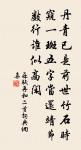 丹青已是前世竹石時
窺一斑五字當還靖節
數行誰似高閑
蘇軾再和二首録與網
集